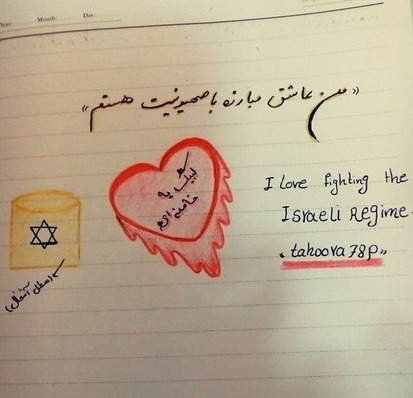 Year: Month: Day:
«من عاشق مبارزه با صهیونیت هستم»
لبیک یا
خامنه ای
I Love fighting the
Israeli Regime.
« tahoora78p »
(سطل آشغال)